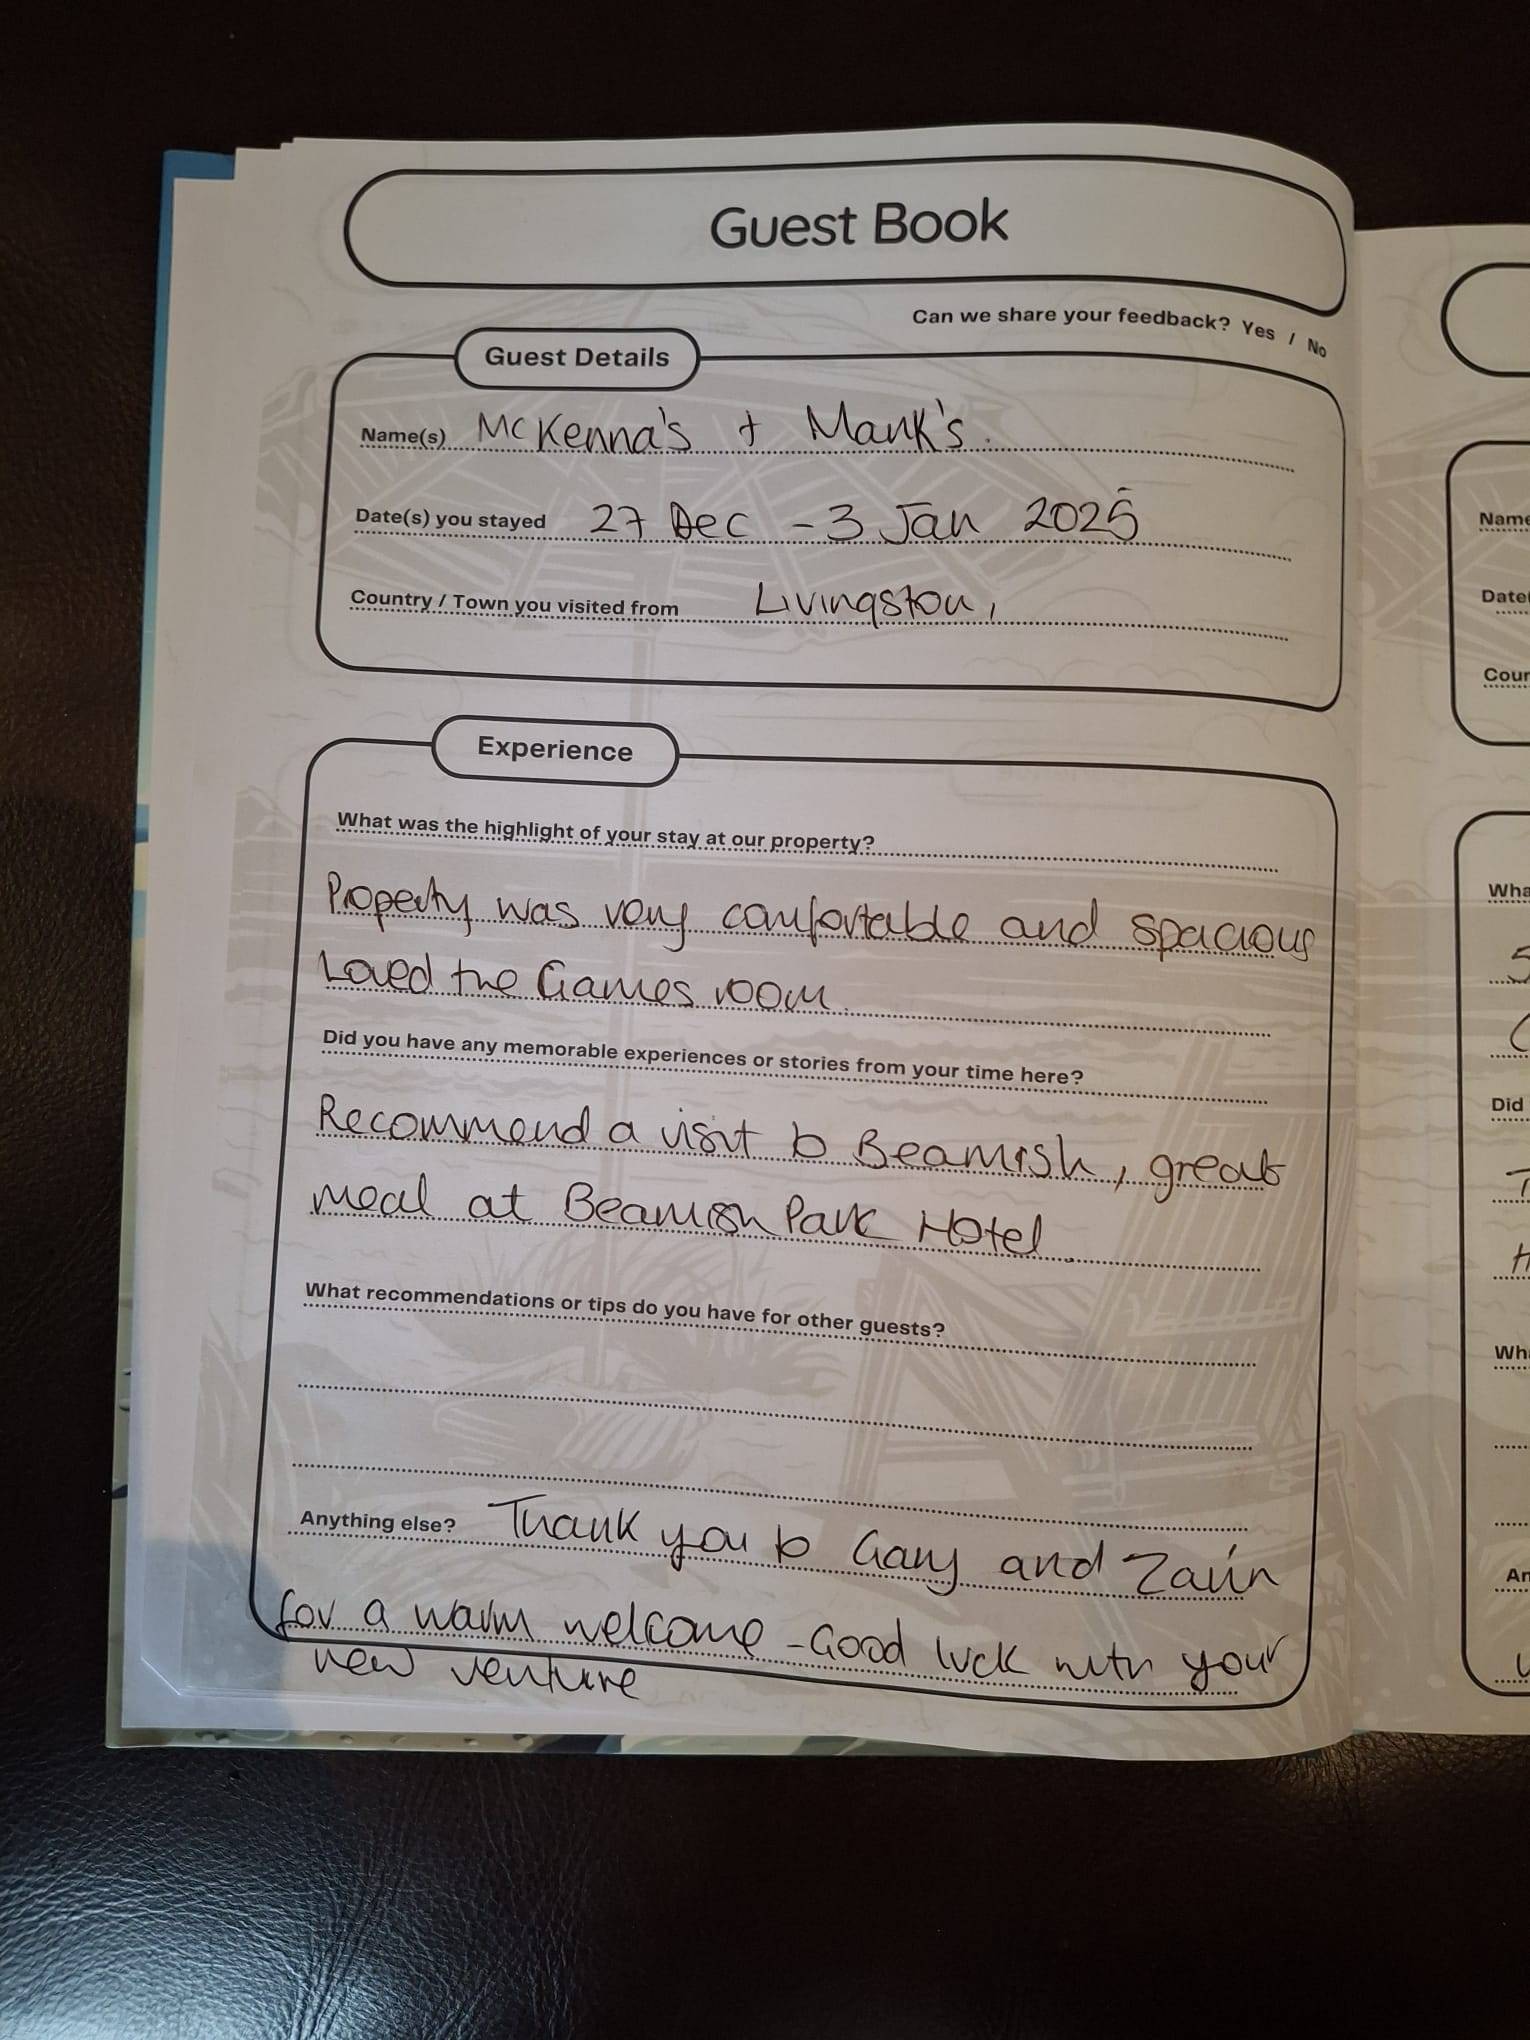 Guest Book
Can we share your feedback? Yes / No
Guest Details
Name(s) McKenna's + Mank's.
Date(s) you stayed 27 Dec - 3 Jan 2025
Country / Town you visited from Livingston,
Experience
What was the highlight of your stay at our property?
Property was very comfortable and spacious
Loved the Games room.
Did you have any memorable experiences or stories from your time here?
Recommend a visit to Beamish, great
meal at Beamish Park Hotel.
What recommendations or tips do you have for other guests?
Anything else? Thank you to Gary and
for a warm welcome - Good luck with your
new venture
Name
Date
Coun
Wha
Did
Wh
An